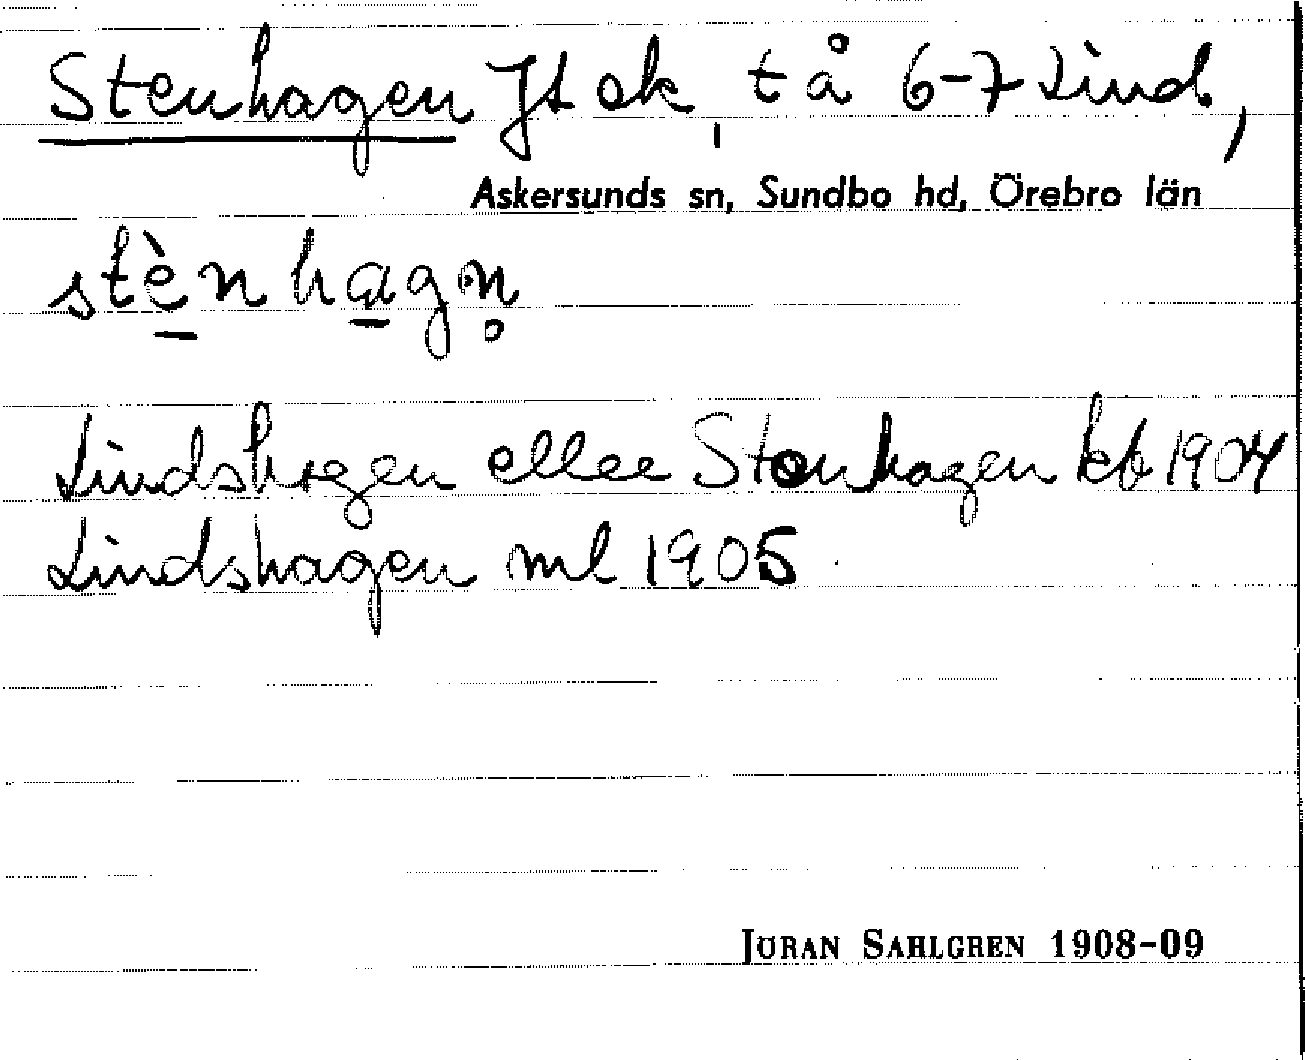 Stenhagen Jt ok, t å 6-7 Lind,
Askersunds sn, Sundbo hd, Örebro län
stènhagn̥
Lindshagen eller Stenhagen kb 1904
Lindshagen ml 1905
JÖRAN SAHLGREN 1908-09